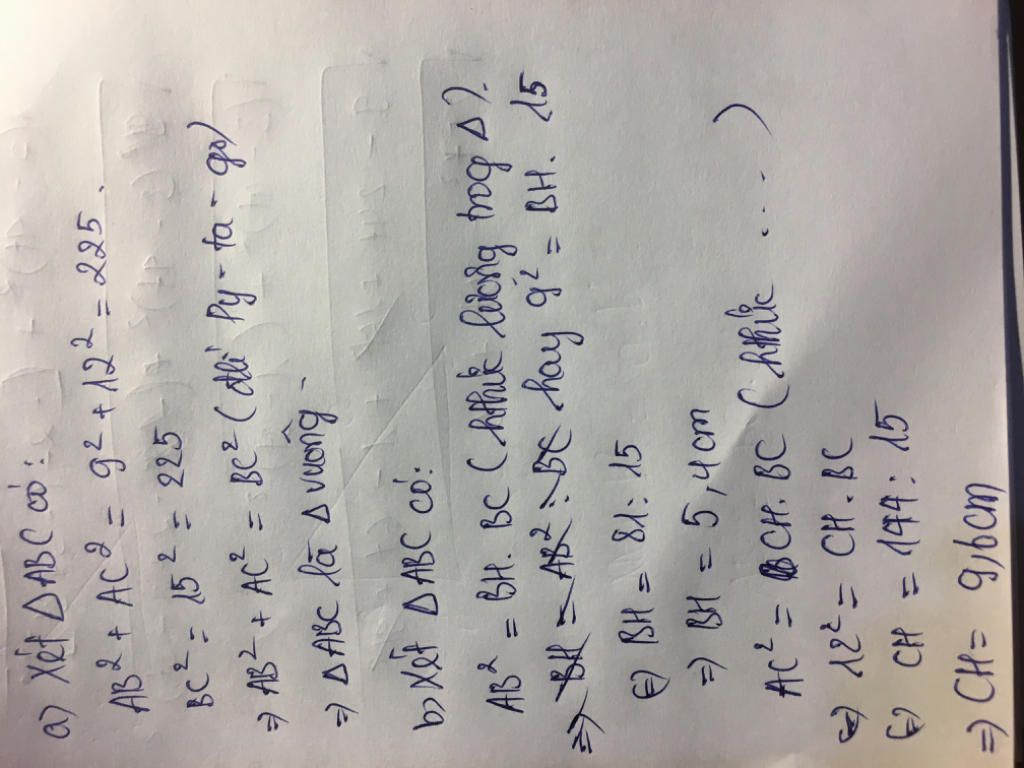 a) Xét △ABC có:
AB² + AC2 = 9² + 12² = 225.
BC² = 15² = 225
⇒ AB² + AC² = BC² (đlí Py-ta-go)
⇒ △ABC là △ vuông
b) Xét △ABC có:
AB² = BH. BC (hthức lượng trog △).
⇒ BH = AB² : BC hay 9² = BH. 15
⇔ BH = 81 : 15
⇒ BH = 5,4cm
AC² = CH. BC (hthức .... )
⇔ 12² = CH. BC
⇔ CH = 144 : 15
⇒ CH = 9,6cm